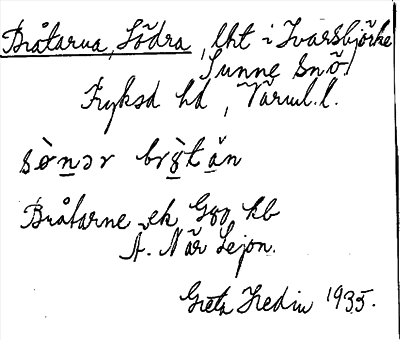 Bråtarna, Södra, lht i Ivarsbjörke
Sunne sn ö.
Fryksd hd, Värml. l.
sò̤nər brò̤tạ̌n
Bråtarne ek Ggo kb
A. När Lejon.
Greta Hedin 1935.